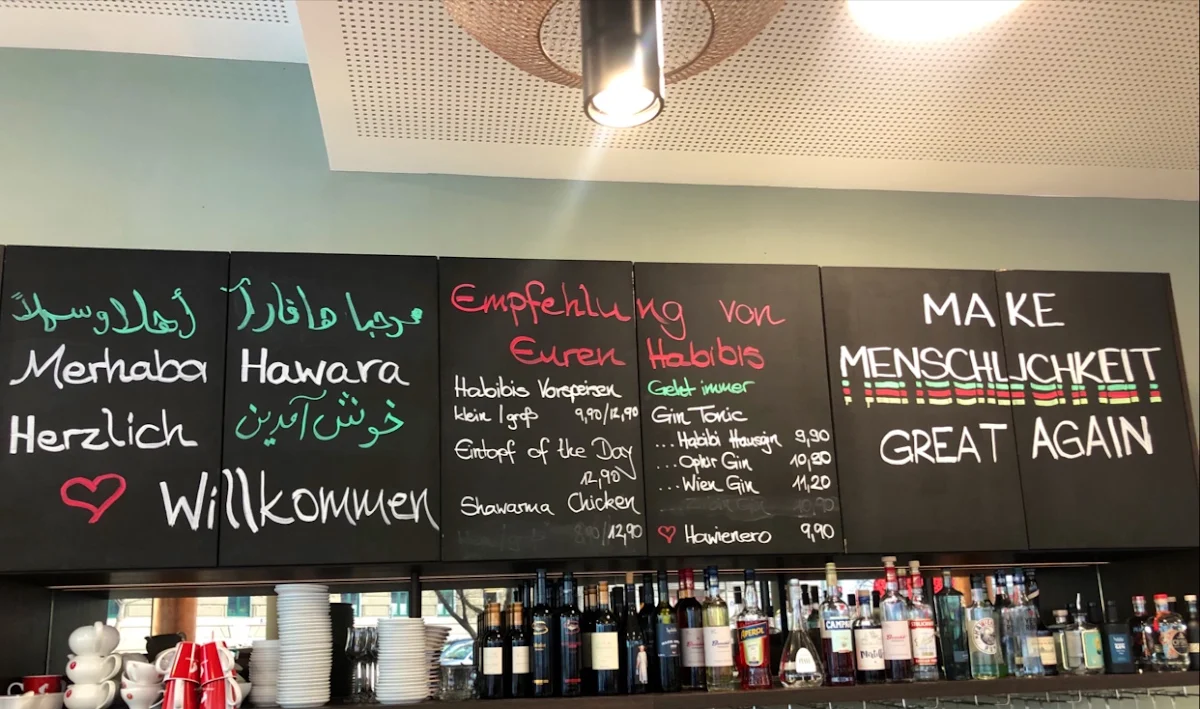 أهلا وسهلاً
مرحبا هافارآ
Merhaba Hawara
Herzlich
خوش آمدین
Willkommen
Empfehlung von
Euren Habibis
Habibis Vorspeisen
klein / groß 9,90/12,90
Eintopf of the Day
12,90
Shawarma Chicken
8,90/12,90
Geht immer
Gin Tonic
...Habibi Hausgin 9,90
...Optur Gin 10,90
...Wien Gin 11,20
10,90
Hawienero 9,90
MAKE
MENSCHLICHKEIT
GREAT AGAIN
CAMPARI
APEROL